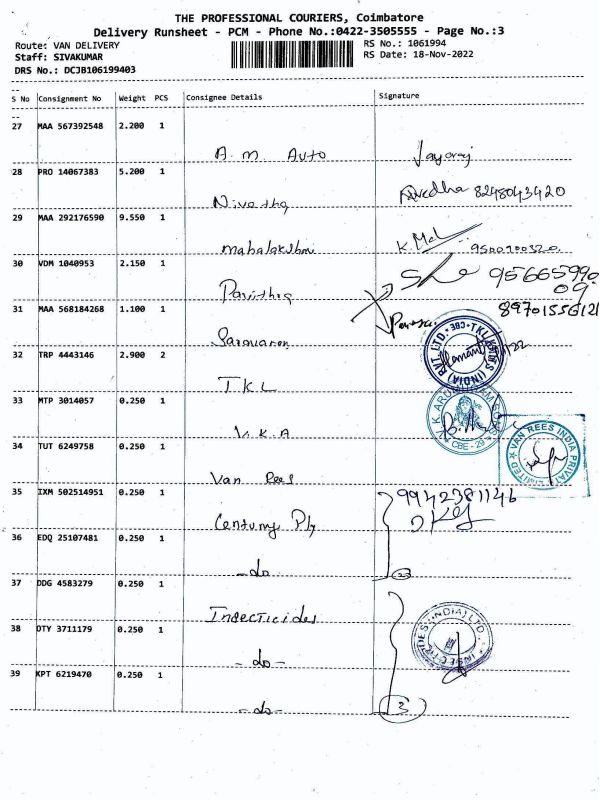 THE PROFESSIONAL COURIERS, Coimbatore
Delivery Runsheet - PCM - Phone No.:0422-3505555 - Page No.:3
Route: VAN DELIVERY RS No.: 1061994
Staff: SIVAKUMAR RS Date: 18-Nov-2022
DRS No.: DCJB106199403
S No Consignment No Weight PCS Consignee Details Signature
27 MAA 567392548 2.200 1
A.M. Auto Jayaraj
28 PRO 14067383 5.200 1
Nivetha Nivedha 8248043420
29 MAA 292176590 9.550 1
mahalakshmi K. Mal 9500900320
30 VDM 1040953 2.150 1
Pavithra 9566599009
31 MAA 568184268 1.100 1 8970155612
Saravanan
32 TRP 4443146 2.900 2
T.K.L
33 MTP 3014057 0.250 1
V.K.A CBE - 29
34 TUT 6249758 0.250 1 VAN REES INDIA PRIVATE LIMITED
Van Rees
35 IXM 502514951 0.250 1 9942381146
Century Ply
36 EDQ 25107481 0.250 1
-do-
37 DDG 4583279 0.250 1
Insecticides
38 OTY 3711179 0.250 1 INSECTICIDES (INDIA) LTD.
-do-
39 KPT 6219470 0.250 1
-do- 3